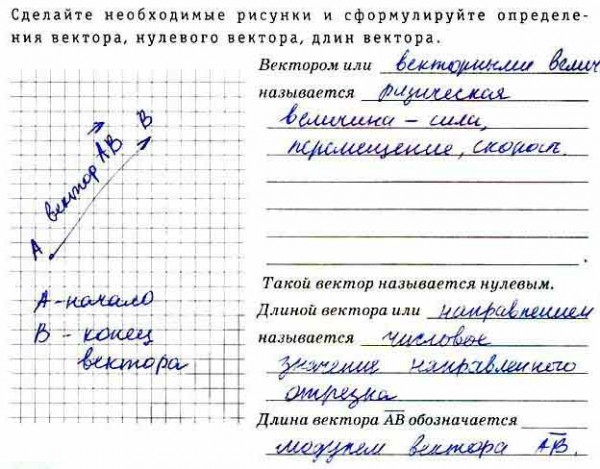 Сделайте необходимые рисунки и сформулируйте определе-
ния вектора, нулевого вектора, длин вектора.
Вектором или векторными велич
называется физическая
величина – сила,
перемещение, скорость.
вектор AB B
A
A - начало
B - конец
вектора
Такой вектор называется нулевым.
Длиной вектора или направлением
называется числовое
значение направленного
отрезка
Длина вектора AB обозначается
модулем вектора AB.